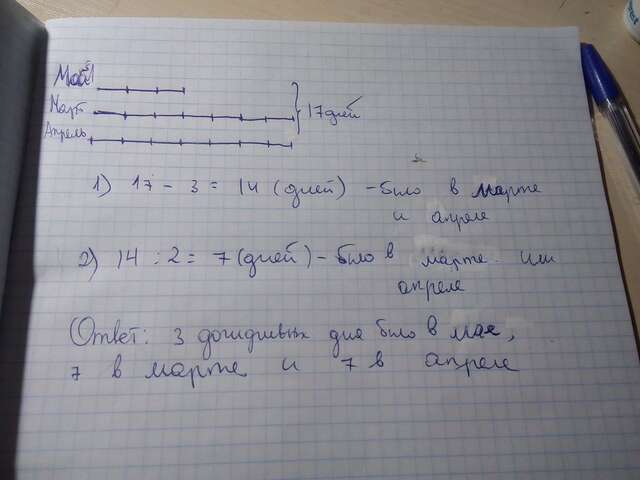 Май
Март
17 дней
Апрель
1) 17 - 3 = 14 (дней) - было в марте
и апреле
2) 14 : 2 = 7 (дней) - было в марте или
апреле
Ответ: 3 дождливых дня было в мае,
7 в марте и 7 в апреле